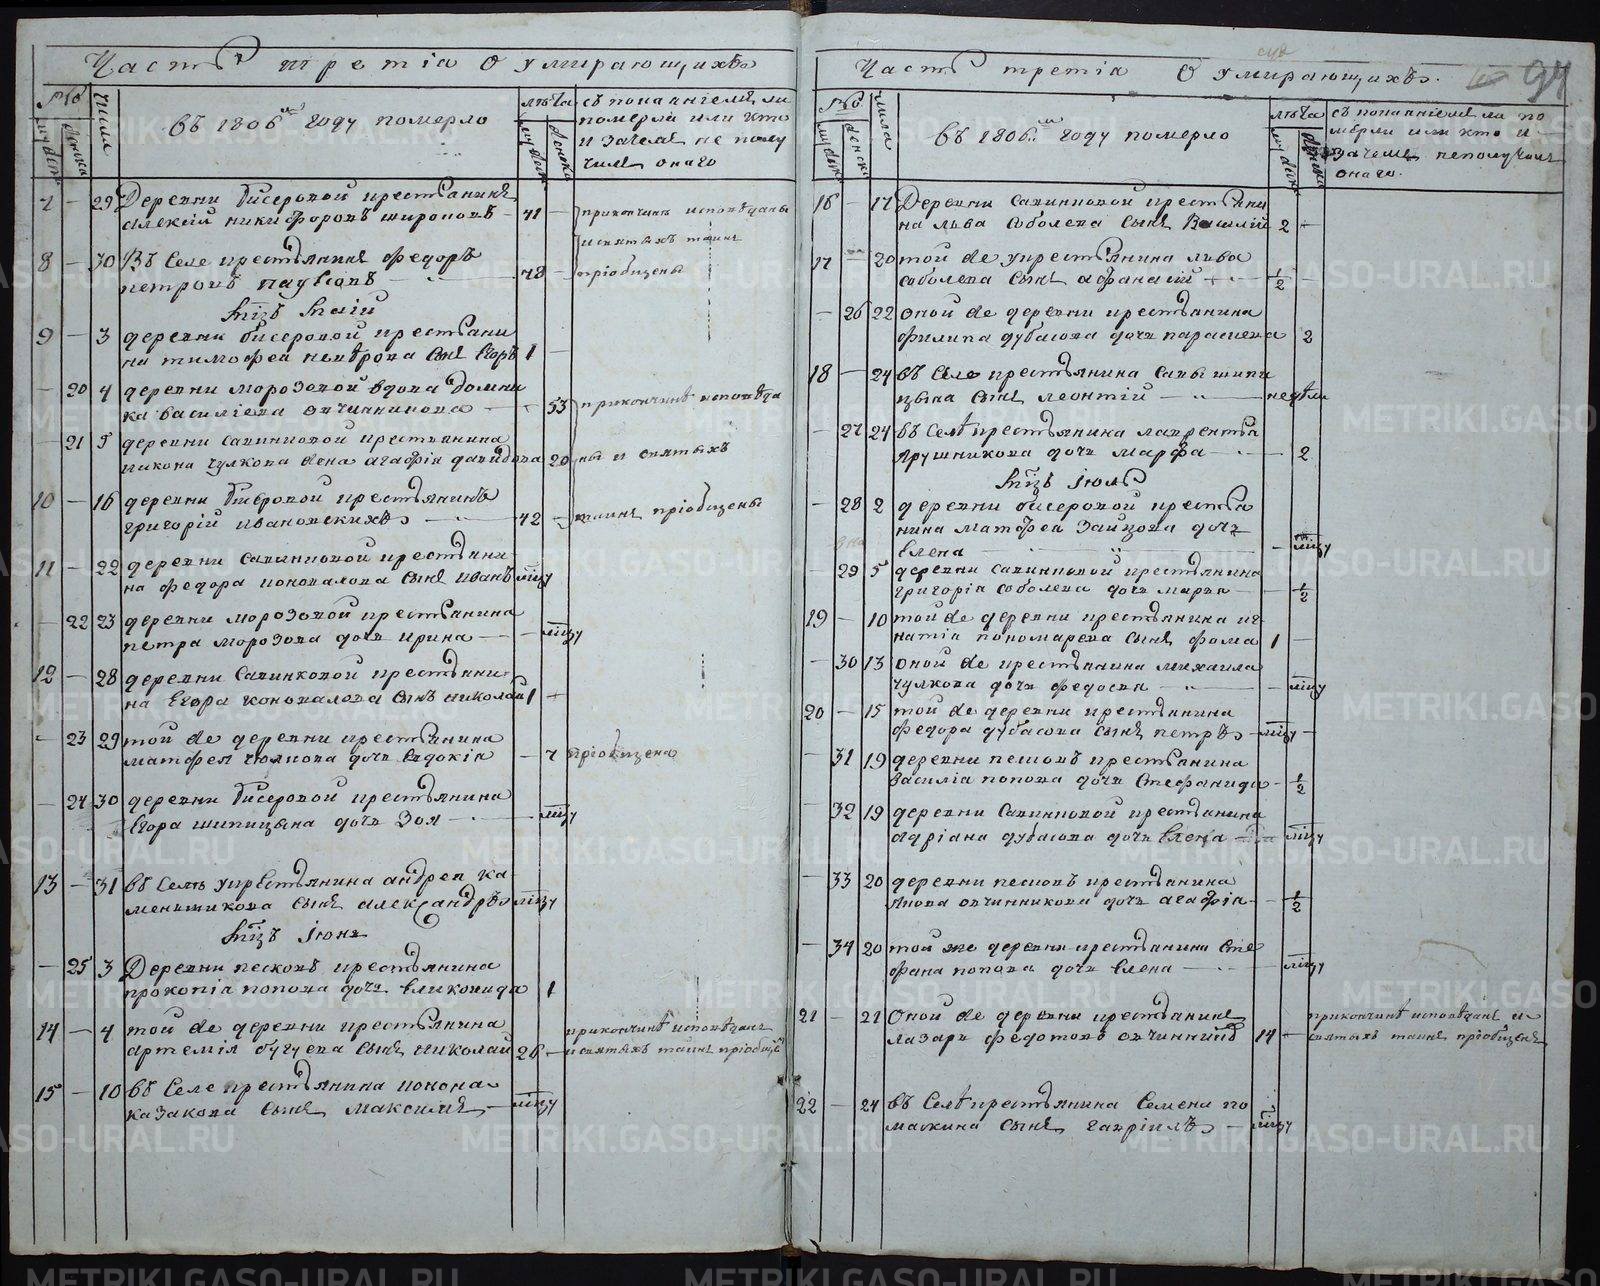 Часть третіа О умирающихъ
№ числа въ 1806м году померло лѣта съ покааніемъ ли
муж женска муж женска померли или кто
и зачемъ не полу
чилъ онаго
7 — 29 Деревни бисеровой крестьянинъ
алексій никифоровъ широковъ — 71 — прикончинѣ исповѣданы
и святыхъ таинъ
8 — 30 Въ селе крестьянинъ федоръ
петровъ — 78 — пріобщены
м҃цъ маій
9 — 3 деревни бисеровой крестьяни
на тимофеа сынъ егоръ 1 —
— 20 4 деревни морозовой вдова домни
ка василіева овчинникова — 53 прикончинѣ исповѣда
— 21 5 деревни савинковой крестьянина
никона чулкова жена агафіа давидова 20 ны и святыхъ
10 — 16 деревни бисеровой крестьянинъ
григорій ивановскихъ — 42 — таинъ пріобщены
11 — 22 деревни савинковой крестьяни
на федора коновалова сынъ иванъ м҃цу
— 22 23 деревни морозовой крестьянина
петра морозова дочь ирина — м҃цу
12 — 28 деревни савинковой крестьяни
на егора коновалова сынъ николай 1 —
— 23 29 той же деревни крестьянина
матфея дочь евдокіа — 7 пріобщена
— 24 30 деревни бисеровой крестьянина
егора шипицына дочь зоя — м҃цу
13 — 31 въ селѣ у крестьянина андрея ка
менщикова сынъ александръ м҃цу
м҃цъ іюнь
— 25 3 Деревни песковъ крестьянина
прокопіа попова дочь еликонида 1
14 — 4 той же деревни крестьянина прикончинѣ исповѣданъ
артеміа бугуева сынъ николай 26 — и святыхъ таинъ пріобщенъ
15 — 10 въ селе крестьянина конона
казакова сынъ максимъ — м҃цу
Часть третіа О умирающихъ. 94
№ числа въ 1806м году померло лѣта съ покааніемъ ли по
муж женска муж женска мерли или кто и
зачемъ неполучилъ
онаго.
16 — 17 Деревни савинковой крестьяни
на льва соболева сынъ василій 2 —
17 — 20 той же у крестьянина льва
соболева сынъ афанасій — 1/2 —
— 26 22 оной же деревни крестьянина
филипа дубасова дочь параскева 2
18 — 24 въ селе крестьянина савы шипи
цына сынъ леонтій — недѣли
— 27 24 въ селѣ крестьянина лаврентья
ярушникова дочь марфа — 2
м҃цъ іюль
— 28 2 деревни бисеровой крестья
нина матфеа зайцова дочь
елена — м҃цу
29 5 деревни савинковой крестьянина
григоріа соболева дочь марья — 1/2
19 — 10 той же деревни крестьянина иг
натіа пономарева сынъ фома 1 —
— 30 13 оной же крестьянина михаила
чулкова дочь федосья — м҃цу
20 — 15 той же деревни крестьянина
федора дубасова сынъ петръ — м҃цу —
— 31 19 деревни песковъ крестьянина
василіа попова дочь стефанида — 1/2
— 32 19 деревни савинковой крестьянина
адріана дубасова дочь елена — м҃цу
— 33 20 деревни песковъ крестьянина
якова овчинникова дочь агафіа — 1/2
— 34 20 той же деревни крестьянина сте
фана попова дочь елена — м҃цу
21 — 21 Оной же деревни крестьянинъ прикончинѣ исповѣданъ и
лазарь федотовъ овчинниковъ 14 — святыхъ таинъ пріобщенъ
22 — 24 въ селѣ крестьянина семена по
маскина сынъ гавріилъ — м҃цу
METRIKI.GASO-URAL.RU